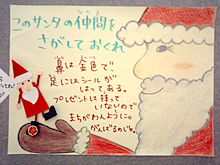 このサンタの仲間を
さがしておくれ
鼻は金色で
足にはシールが
はってある。
プレゼントは持って
いないので
まちがわんように。
がんばるのじゃ。